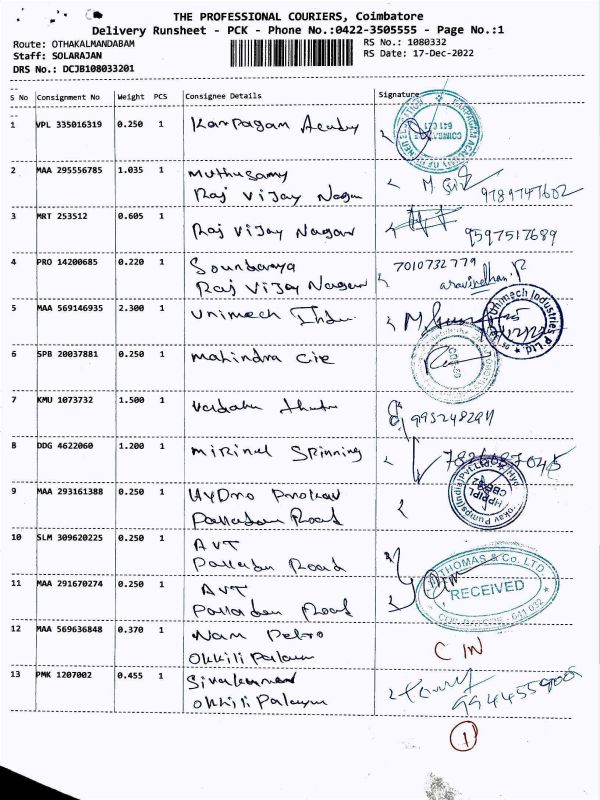 THE PROFESSIONAL COURIERS, Coimbatore
Delivery Runsheet - PCK - Phone No.:0422-3505555 - Page No.:1
Route: OTHAKALMANDABAM
RS No.: 1080332
Staff: SOLARAJAN
RS Date: 17-Dec-2022
DRS No.: DCJB108033201
S No Consignment No Weight PCS Consignee Details Signature
1 VPL 335016319 0.250 1 Karpagam
2 MAA 295556785 1.035 1 Muthusamy
Raj Vijay Nagar
9789747602
3 MRT 253512 0.605 1 Raj Vijay Nagar
9597517689
4 PRO 14200685 0.220 1 Soundaraya 7010732779
Raj Vijay Nagar aravindhan.P
5 MAA 569146935 2.300 1 Unimech
Unimech Industries P Ltd.
6 SPB 20037881 0.250 1 Mahindra Cie
7 KMU 1073732 1.500 1
8 DDG 4622060 1.200 1 Mirinal Spinning
9 MAA 293161388 0.250 1 Hydro Prokav
Palladam Road
10 SLM 309620225 0.250 1 AVT
Palladam Road
THOMAS & Co. LTD.
RECEIVED
COIMBATORE - 641 032
11 MAA 291670274 0.250 1 AVT
Palladam Road
12 MAA 569636848 0.370 1 Nam Petro
Okkili Palayam
CIN
13 PMK 1207002 0.455 1
Okkili Palayam
1